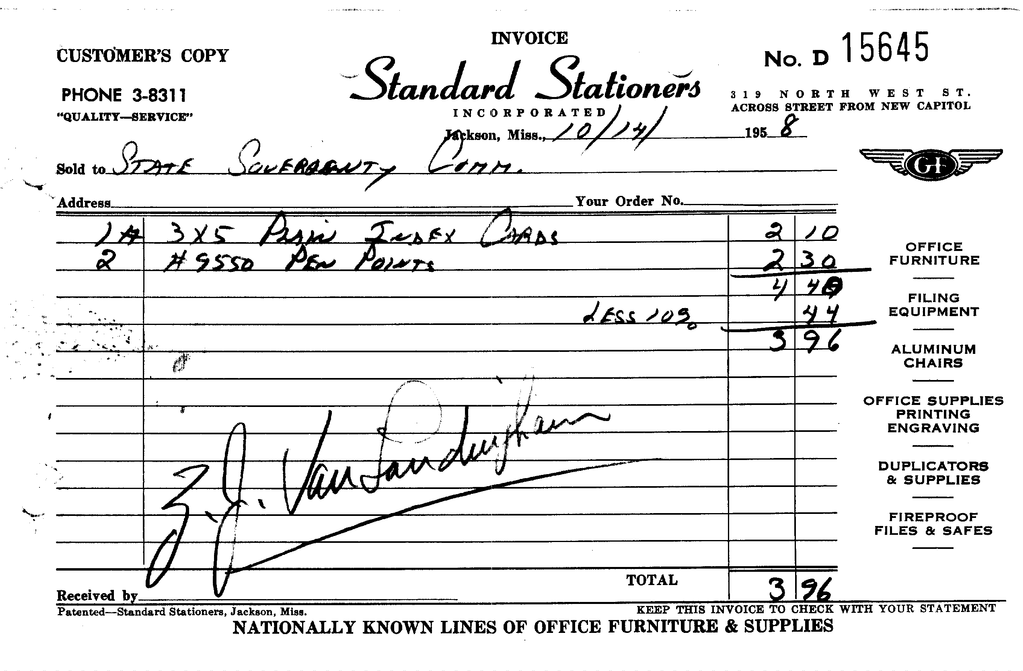 CUSTOMER'S COPY
INVOICE
No. D 15645
PHONE 3-8311
"QUALITY—SERVICE"
Standard Stationers
INCORPORATED
319 NORTH WEST ST.
ACROSS STREET FROM NEW CAPITOL
Jackson, Miss., 10/14/ 1958
Sold to STATE SOVERGENTY COMM.
GF
Address Your Order No.
1M 3X5 PLAIN INDEX CARDS 2 10
2 #9550 PEN POINTS 2 30
4 40
LESS 10% 44
3 96
Z. J. Van Landingham
OFFICE
FURNITURE
FILING
EQUIPMENT
ALUMINUM
CHAIRS
OFFICE SUPPLIES
PRINTING
ENGRAVING
DUPLICATORS
& SUPPLIES
FIREPROOF
FILES & SAFES
TOTAL 3 96
Received by
Patented—Standard Stationers, Jackson, Miss.
KEEP THIS INVOICE TO CHECK WITH YOUR STATEMENT
NATIONALLY KNOWN LINES OF OFFICE FURNITURE & SUPPLIES